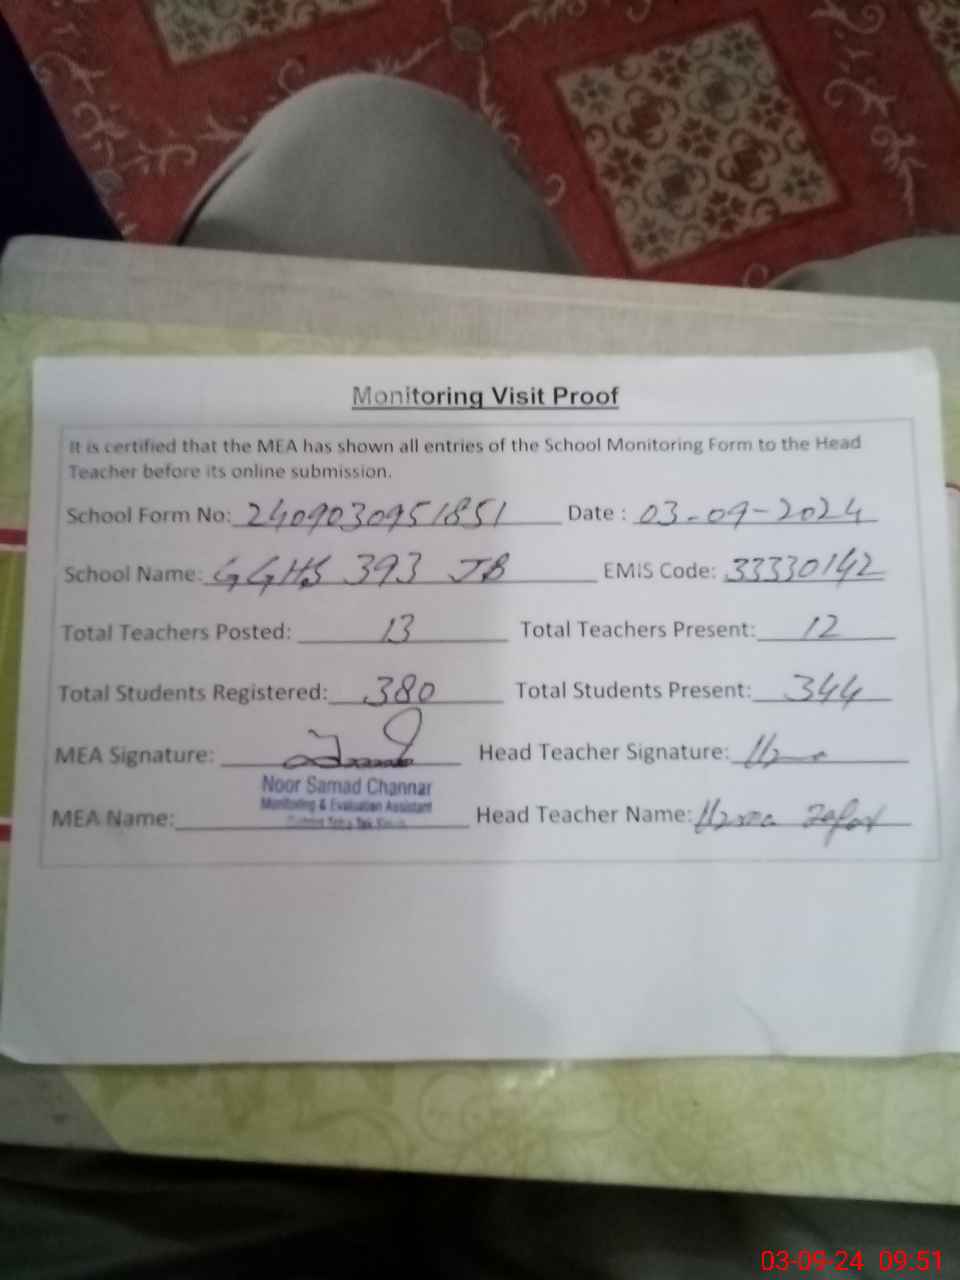 Monitoring Visit Proof
It is certified that the MEA has shown all entries of the School Monitoring Form to the Head
Teacher before its online submission.
School Form No: 2409030951851 Date : 03-09-2024
School Name: GGHS 393 JB EMIS Code: 33330142
Total Teachers Posted: 13 Total Teachers Present: 12
Total Students Registered: 380 Total Students Present: 344
MEA Signature: Head Teacher Signature:
Noor Samad Channar
Monitoring & Evaluation Assistant
District Toba Tek Singh
MEA Name: Head Teacher Name: Uzma Zafar
03-09-24 09.51